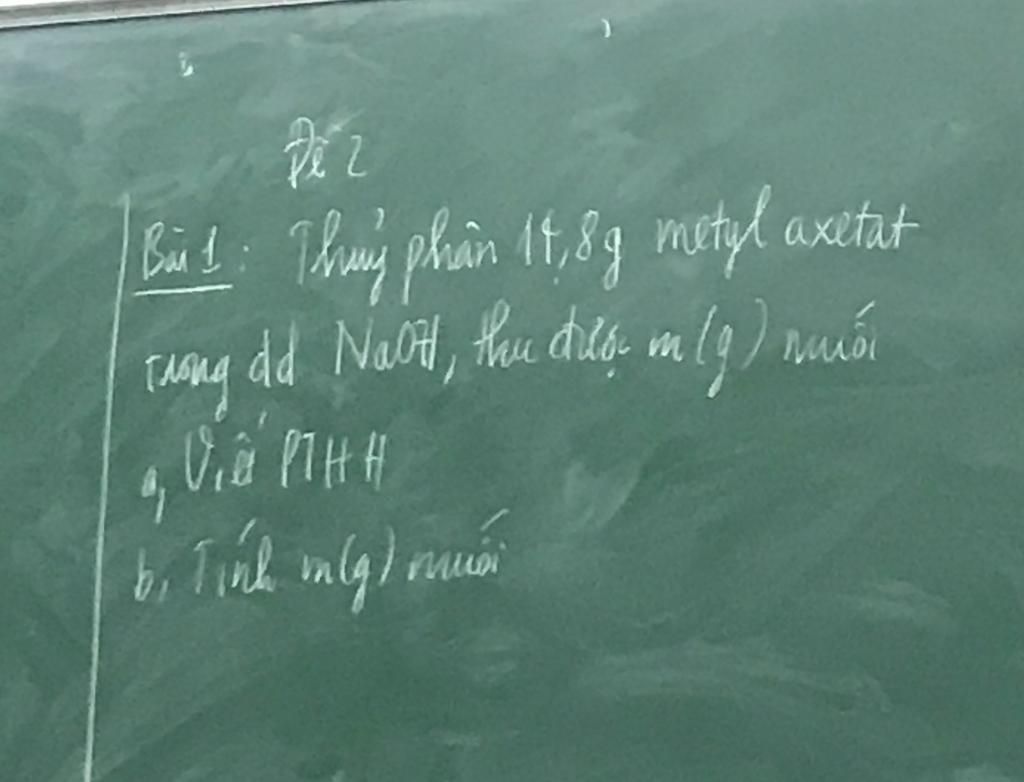 Đề 2
Bài 1: Thuỷ phân 14,8g metyl axetat
trong dd NaOH, thu được m(g) muối
a, Viết PTHH
b, Tính m(g) muối